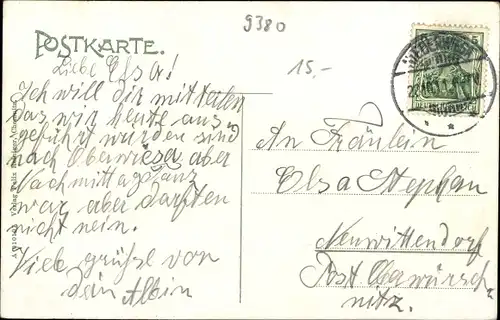 9380
POSTKARTE.
15,-
5
Liebe Elsa!
Ich will dir mitteilen
das wir heute aus
geführt wurden sind
nach Obawiesa aber
Nachmittag Tanz
war aber darften
nicht nein.
Viele grühse von
dein Albin
An Fräulein
Elsa Stephan
Neuwittendorf
Post Obawürsch-
nitz.